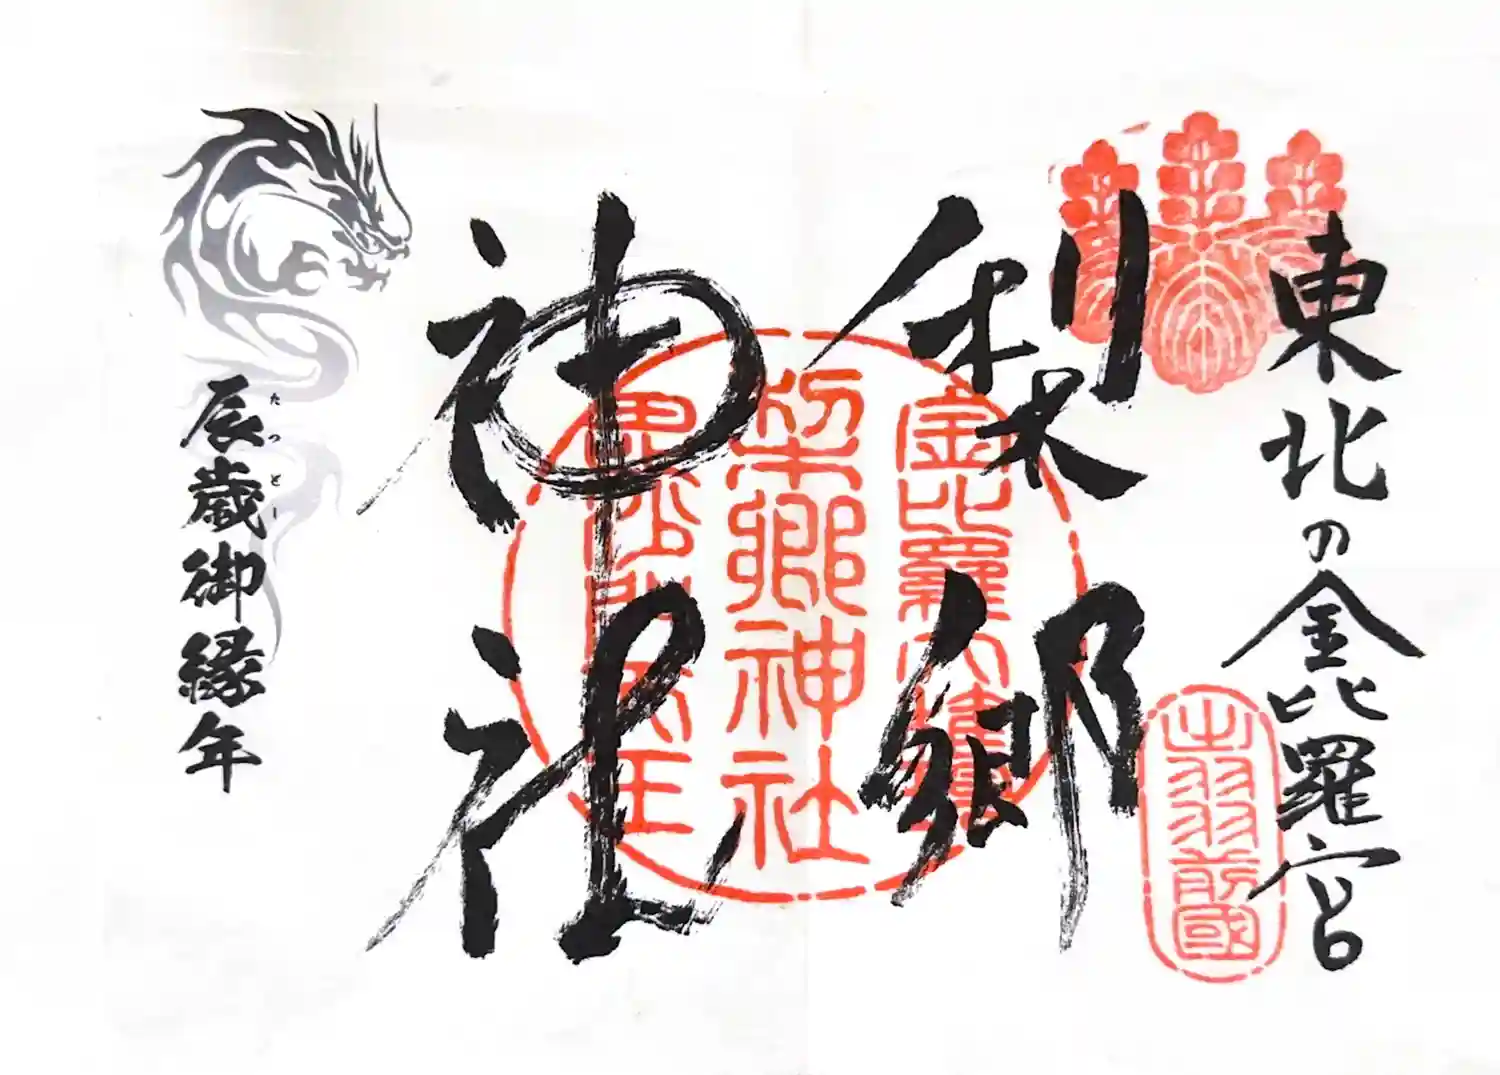 東北の金比羅宮
出羽前國
梨郷
神社
金比羅大権現
梨郷神社
毘沙門天王
辰歳御縁年
たつどし